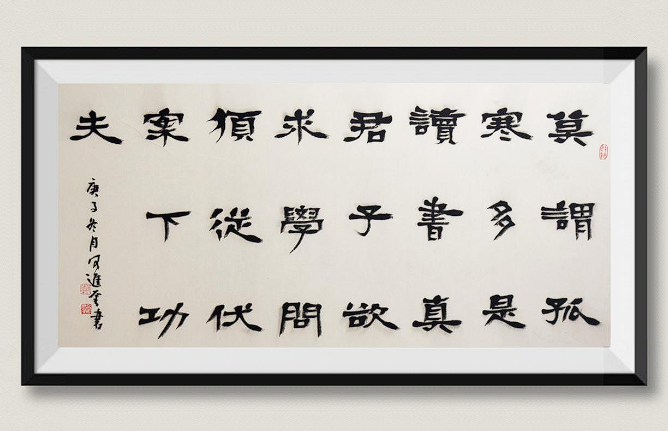 莫謂孤
寒多是
讀書真
君子欲
求學問
須從伏
案下功
夫
庚子冬月何進奎書